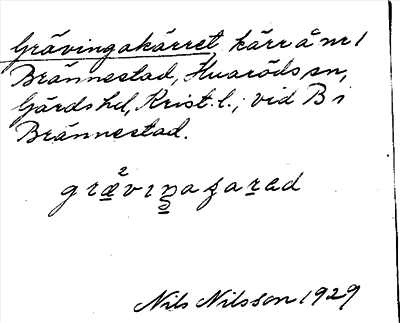 Grävingakärret, kärr å nr 1
Brännestad, Huaröds sn,
Gärds hd, Krist. l.; vid B i
Brännestad.
Nils Nilsson 1929